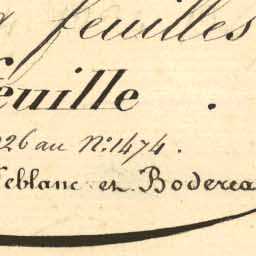 feuilles
feuille .
26 au N:1474.
leblanc et Boderea